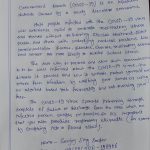 Coronavirus Disease (COVID-19) is an infectious
disease caused by a newly discovered coronavirus.
Most people infected with the COVID-19 virus
will experience mild to moderate respiratory illness
and recover without requiring special treatment. Older
people and those with underlying medical problems like
cardiovascular disease, diabetes, chronic respiratory disease
and cancer are more likely to develop serious illness.
The best way to prevent and slow down transmission
is to be well informed about the COVID-19 virus, the
disease it causes and how it spreads. Protect yourself and
others from infection by washing your hands or using
an alcohol based rub frequently and not touching your
face.
The COVID-19 virus spreads primarily through
droplets of saliva or discharge from the nose when an
infected person coughs or sneezes, so it's important
that you also practice respiratory etiquette (for example,
by coughing into a flexed elbow).
Name -